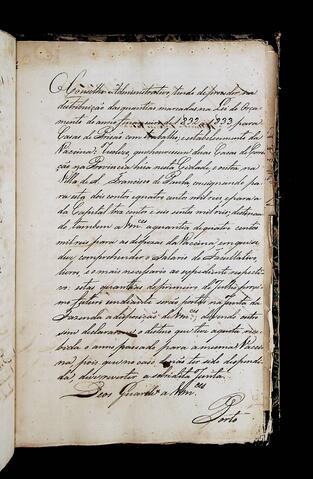 O Conselho Administrativo, tendo de proceder na
distribuição das quantias marcadas na Lei do Orça-
mento do anno financeiro de 1832 a 1833 para
Casas de Prisão com trabalho, estabelecimento da
Vaccina, resolveo, que houvessem duas Casas de Correc-
ção na Provincia hua nesta Cidade, e outra na
Villa de S. Francisco de Paula, consignando pa-
ra esta dois contos e quatro centos mil reis e para a
da Capital tres contos e seis centos mil reis, destinan-
do tambem a Vmces a quantia de quatro centos
mil reis para as despezas da Vaccina em que se
deve comprehender o Salario do Facultativo,
livros, e o mais necessario ao expediente respectivo:
estas quantias do primeiro de Julho proxi-
mo futuro em diante serão postas na Junta da
Fazenda a disposição de Vmces; devendo outro
sim declararem o destino que teve a quantia rece-
bida o anno passado para a mesma Vacci-
na, pois que no caso de não ter sido despendi-
da, deve reverter a sobredita Junta.
Deos Guarde a Vmces
Porto